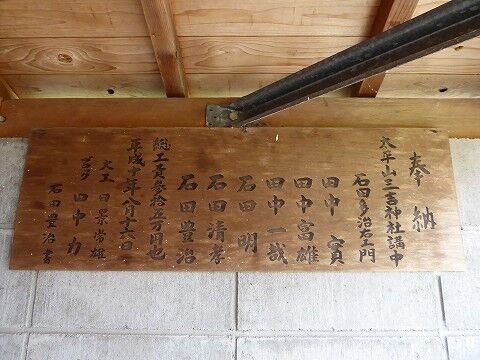 奉納
太平山三吉神社講中
石田多治右エ門
田中寅
田中富雄
田中一哉
石田明
石田清孝
石田豊治
総工費参拾五万円也
平成十年八月十六日
大工 日景常雄
ブロック 田中力
石田豊治書